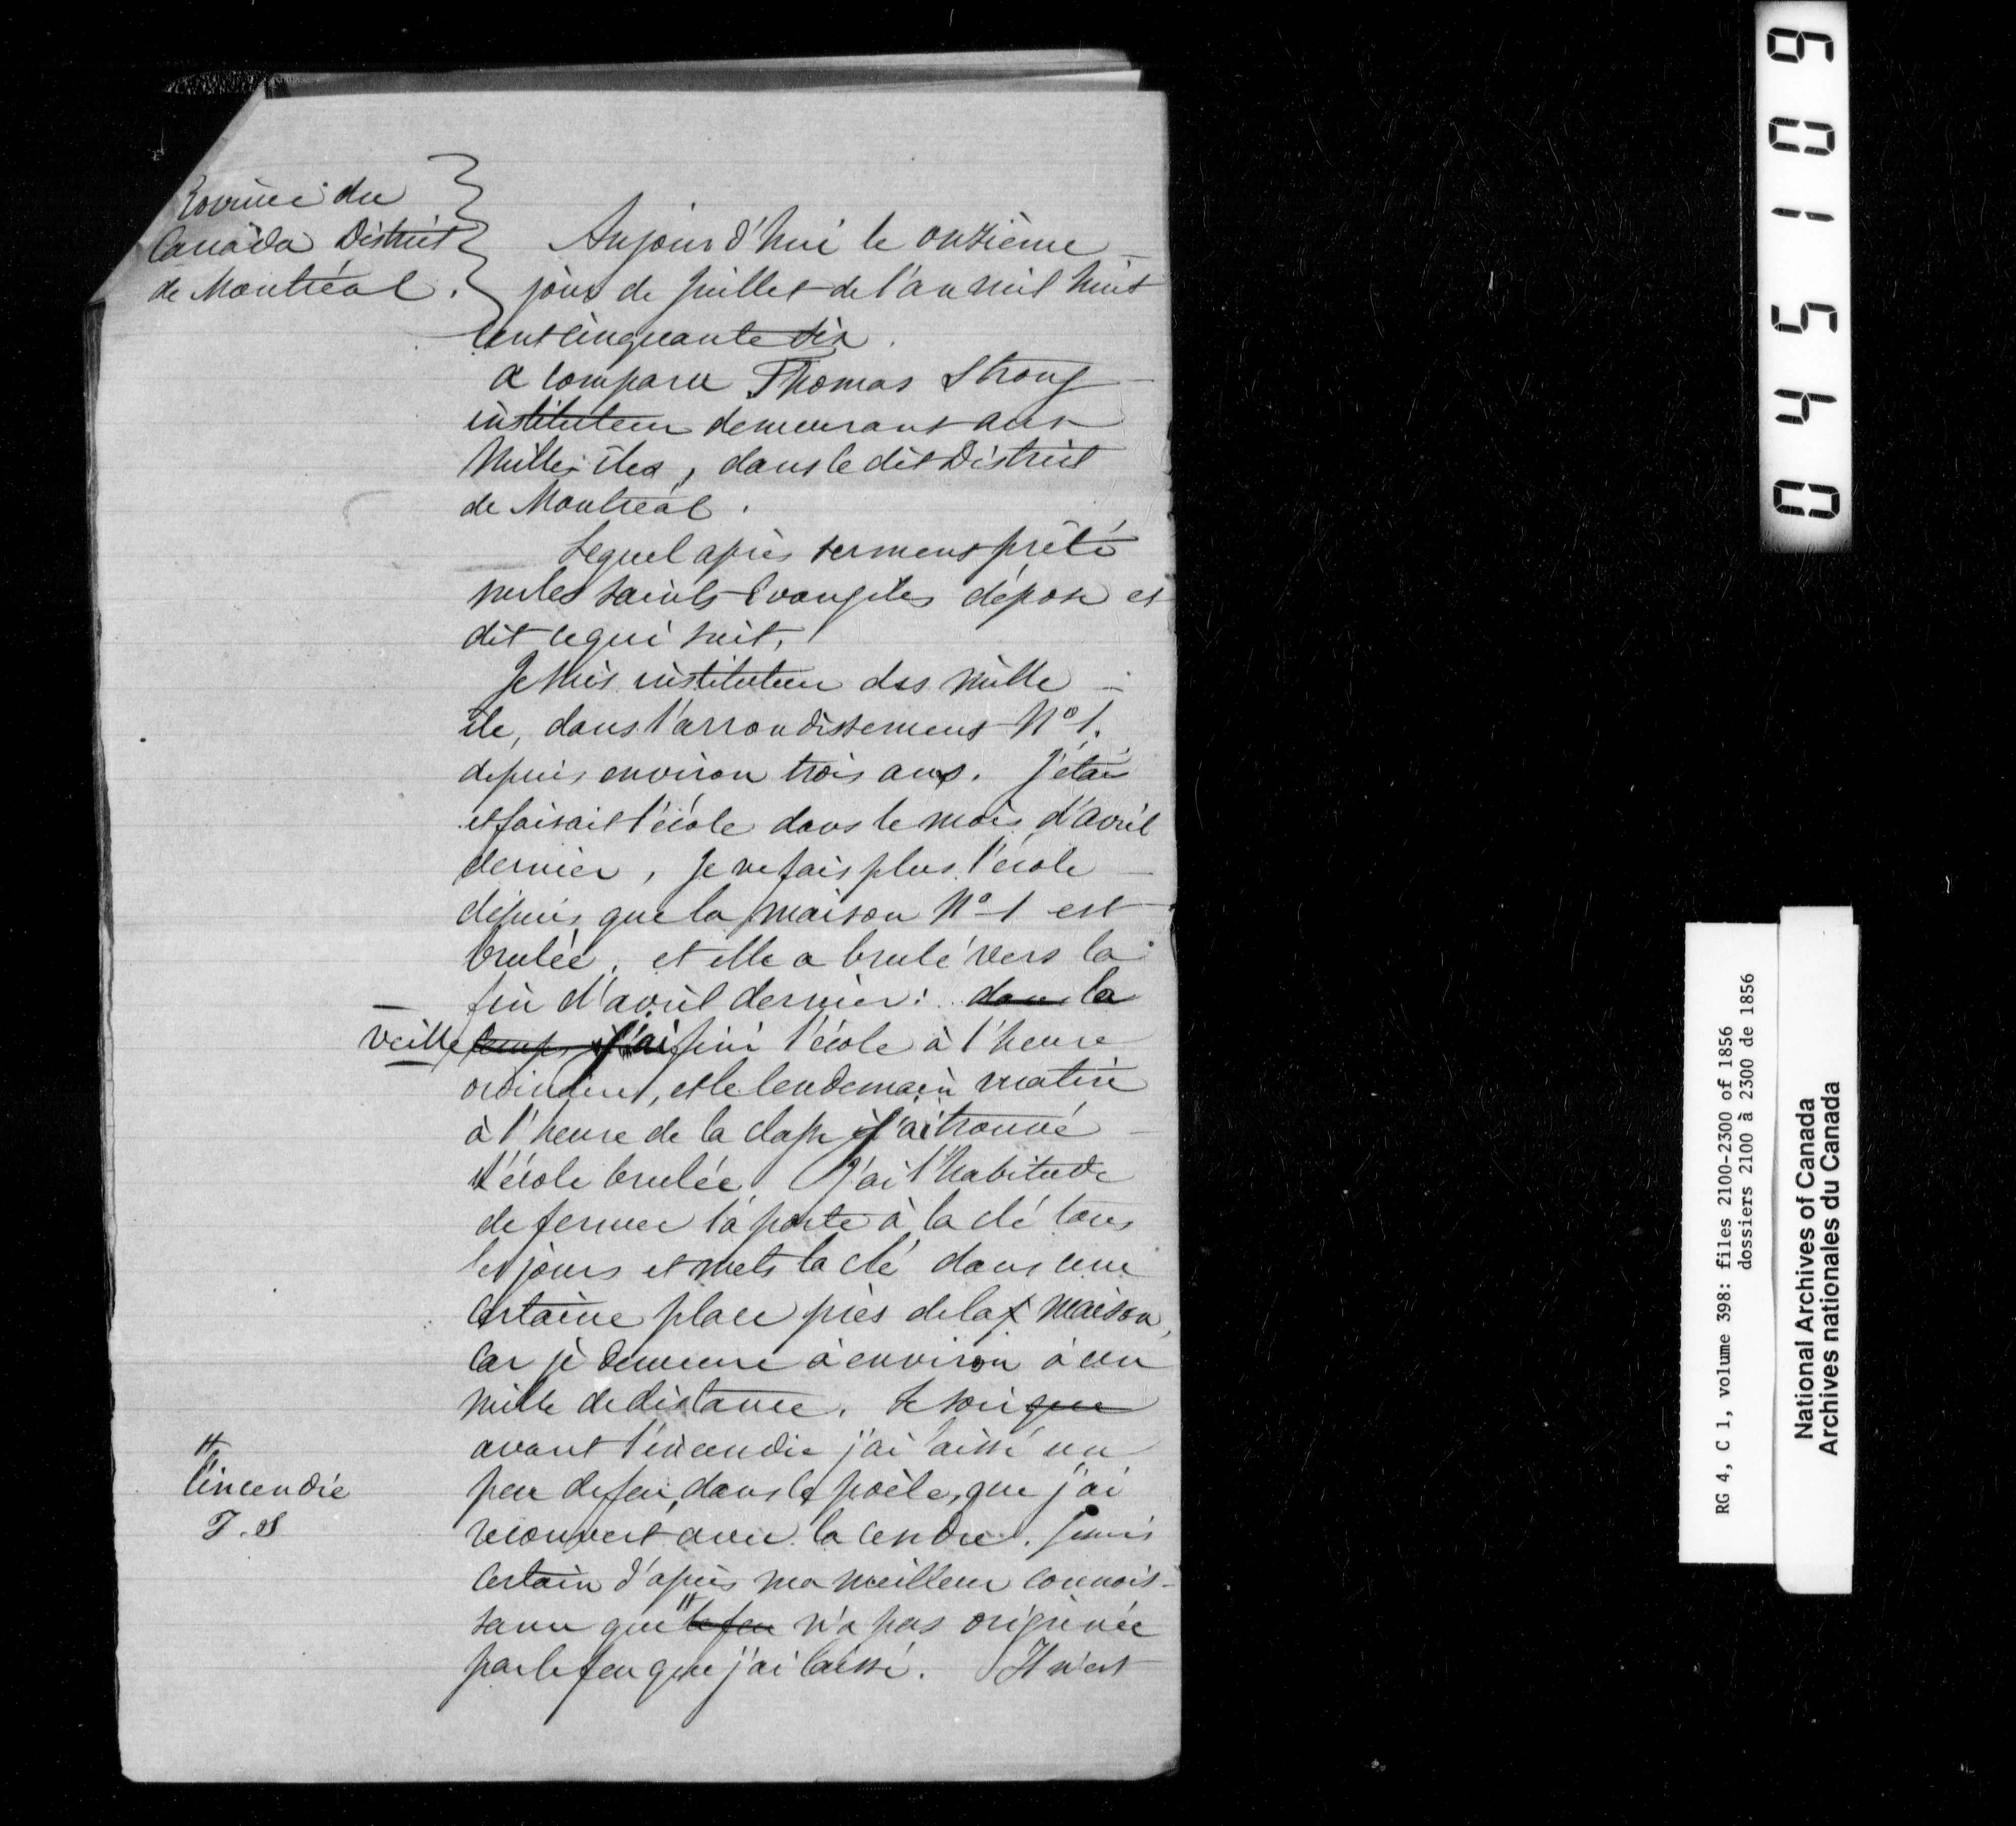 Province du
Canada District
de Montréal.
Aujourd'hui le onzième
jour de Juillet de l'an mil huit
cent cinquante six.
a comparu Thomas Strong
instituteur demeurant aux
Milles îles, dans le dit District
de Montréal.
Lequel après serment prêté
sur les saints Evangiles dépose et
dit ce qui suit,
Je suis instituteur des Mille
île, dans l'arrondissement No 1.
depuis environ trois ans. J'étais
et faisait l'école dans le mois d'avril
dernier, Je ne fais plus l'école
depuis que la maison No 1 est
brulée, et elle a brulé vers la
fin d'avril dernier: dans la
veille temps j'ai fini l'école à l'heure
ordinaire, et le lendemain matin
à l'heure de la classe j'ai trouvé
l'école brulée. J'ai l'habitude
de fermer la porte à la clé tous
les jours et mets la clé dans une
certaine place près de la maison,
car je demeure à environ à un
mille de distance. Le soir que
avant l'incendie j'ai laissé un
peu de feu, dans le poêle, que j'ai
recouvert avec la cendre. Je suis
certain d'après ma meilleure connois-
sance que " le feu n'a pas originée
par le feu que j'ai laissé. Il n'est
"
l'incendie
T. S
045109
RG 4, C 1, volume 398: files 2100-2300 of 1856
dossiers 2100 à 2300 de 1856
National Archives of Canada
Archives nationales du Canada